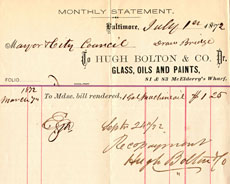 MONTHLY STATEMENT.
Baltimore, July 1st 1872
Mayor & City Council
Draw Bridge
To HUGH BOLTON & CO. Dr.
GLASS, OILS AND PAINTS,
FOLIO.
81 & 83 McElderry's Wharf.
1872
To Mdse. bill rendered, 1 Gal $ 1 25
Sept 24/72
Hugh Bolton & Co